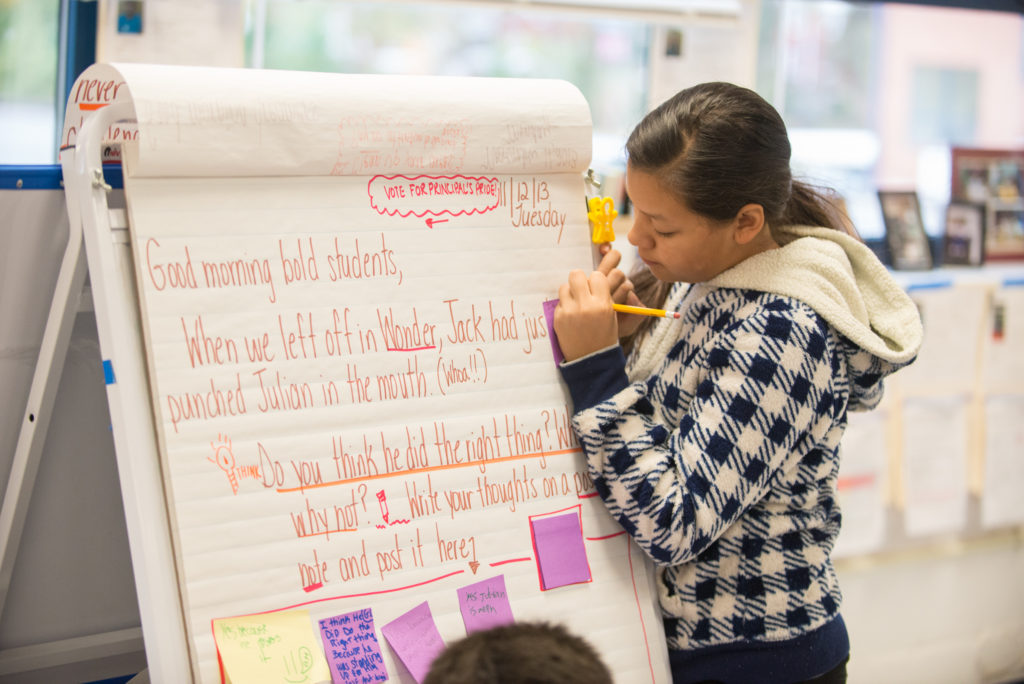 never
VOTE FOR PRINCIPAL'S PRIDE!
11/12/13
Tuesday
Good morning bold students,
When we left off in Wonder, Jack had jus
punched Julian in the mouth. (Whoa!!)
THINK
Do you think he did the right thing? Wh
why not? Write your thoughts on a po
note and post it here
Yes because
he
it
I think He
Did Do the
Right thing
Because he
was standing
Up for
Yes Julian
is mean